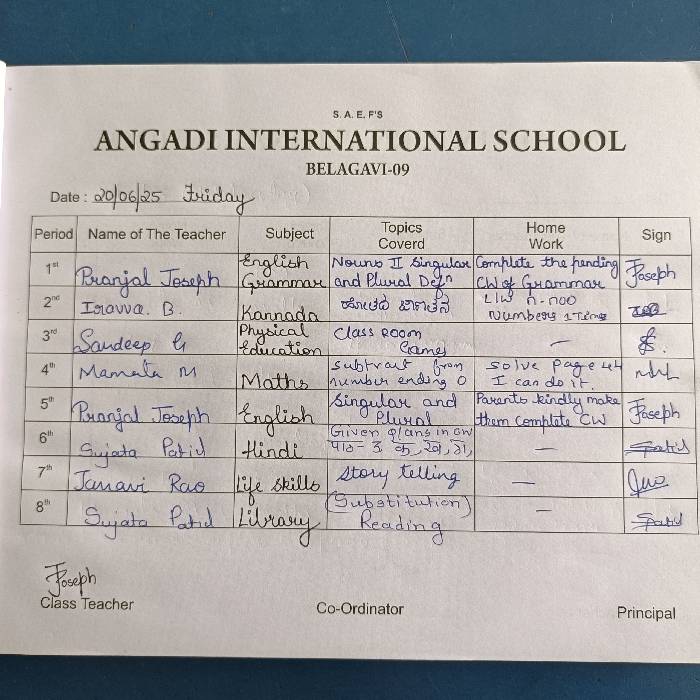 S. A. E. F'S
ANGADI INTERNATIONAL SCHOOL
BELAGAVI-09
Date : 20/06/25 Friday
Period Name of The Teacher Subject Topics Coverd Home Work Sign
1st Pranjal Joseph English Grammar Nouns II Singular and Plural Defn Complete the pending CW of Grammar Joseph
2nd Iravva. B. Kannada Numbers
3rd Sandeep G Physical Education Class Room Games —
4th Mamata M Maths subtract from number ending 0 solve page 44 I can do it.
5th Pranjal Joseph English Singular and Plural Parents kindly make them complete CW Joseph
6th Sujata Patil Hindi Given in CW पाठ-3 क, ख, ग, — Spatil
7th Janavi Rao Life skills Story telling —
8th Sujata Patil Library (Substitution) Reading — Spatil
Joseph
Class Teacher Co-Ordinator Principal